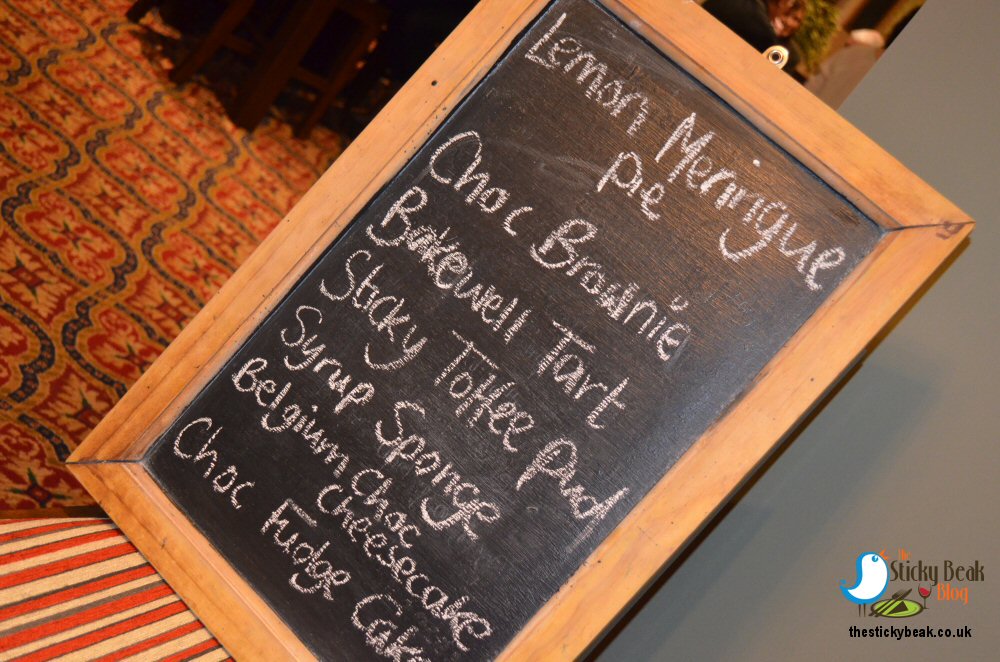 Lemon Meringue
Pie
Choc Brownie
Bakewell Tart
Sticky Toffee Pud
Syrup Sponge
Belgium Choc
Cheesecake
Choc Fudge Cake
the
Sticky Beak
Blog
thestickybeak.co.uk